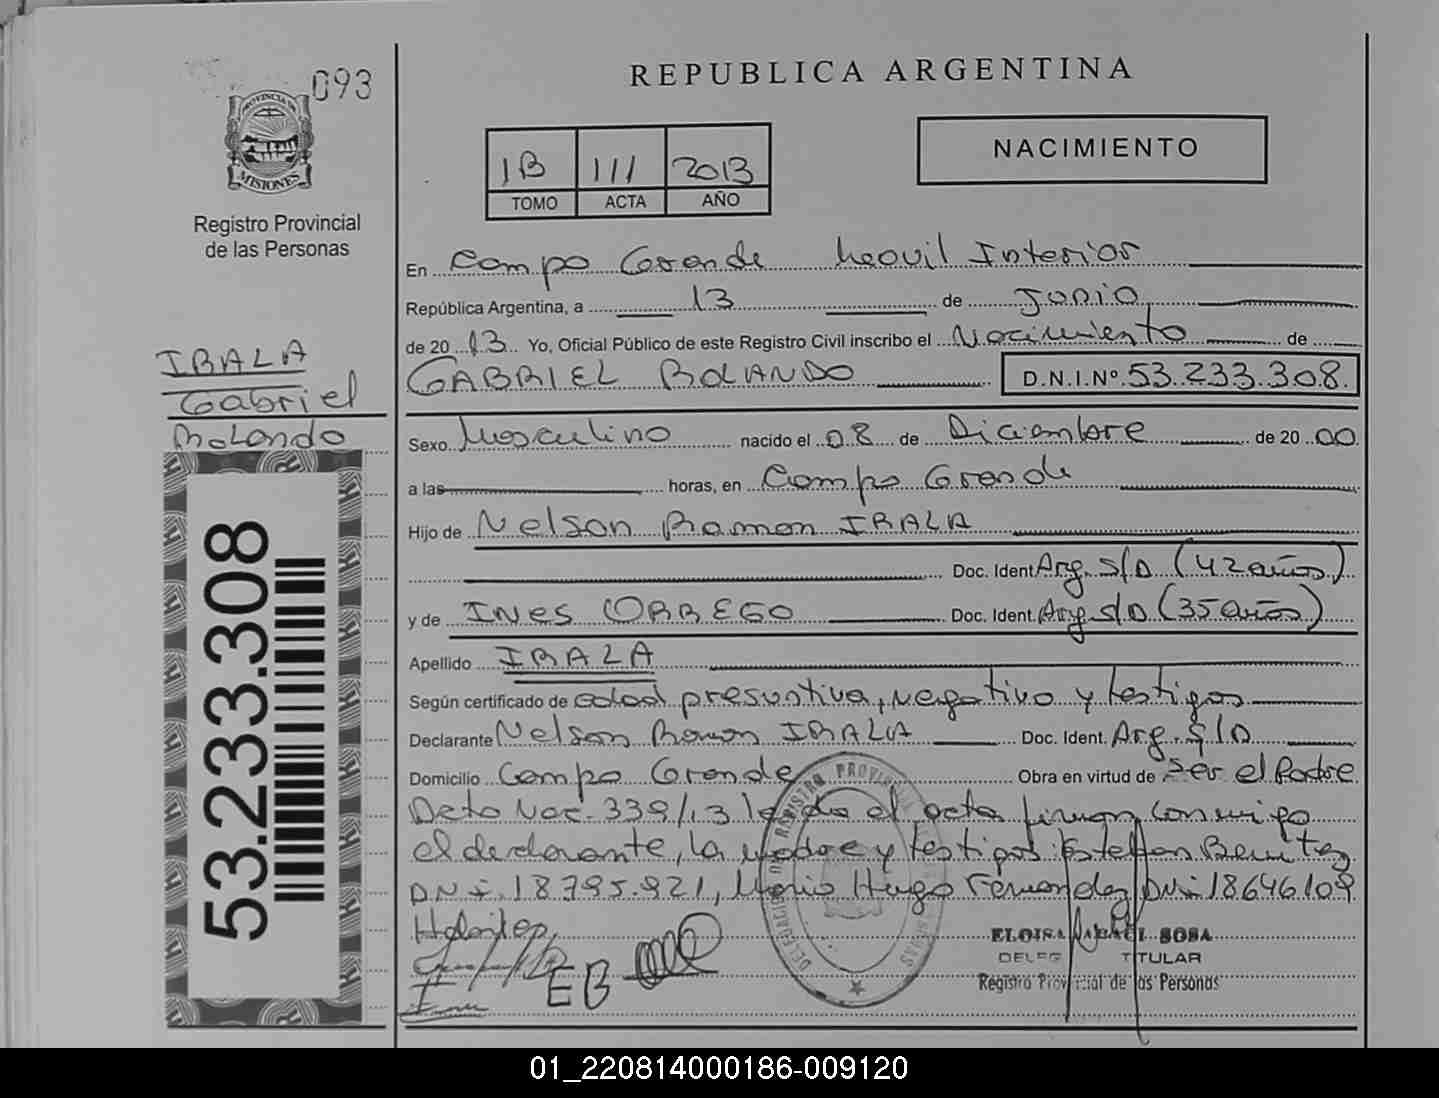 093
REPUBLICA ARGENTINA
PROVINCIA DE
MISIONES
Registro Provincial
de las Personas
1B 111 2013
TOMO ACTA AÑO
NACIMIENTO
En Campo Grande Movil Interior
República Argentina, a 13 de Junio
de 20 13 Yo, Oficial Público de este Registro Civil inscribo el Nacimiento de
GABRIEL ROLANDO D.N.I.Nº 53.233.308.
IRALA
Gabriel
Rolando
Sexo Masculino nacido el 08 de Diciembre de 20 00
a las horas, en Campo Grande
Hijo de Nelson Ramon IRALA
Doc. Ident Arg. S/D (42 años)
y de INES ORREGO Doc. Ident. Arg. s/D (35 años)
Apellido IRALA
Según certificado de edad presuntiva, negativo y testigos
Declarante Nelson Ramon IRALA Doc. Ident. Arg. S/D
Domicilio Campo Grande Obra en virtud de ser el Padre
Dcto Nac. 339/13 leida el acta firman conmigo
el declarante, la madre y testigos: Esteban Benitez
DNI. 18.795.921, Mario Hugo Fernandez DNI 18646109
53.233.308
ELOISA SOSA
TITULAR
Registro Provincial de las Personas
EB
01_220814000186-009120